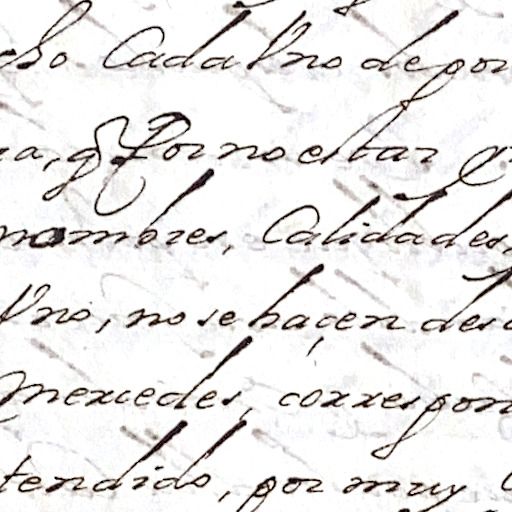 cho Cada Vno de por
ra, q Por no estar
nombres, Calidades,
Vno, no se haçen des
mercedes, corrrespon
tendido, por muy